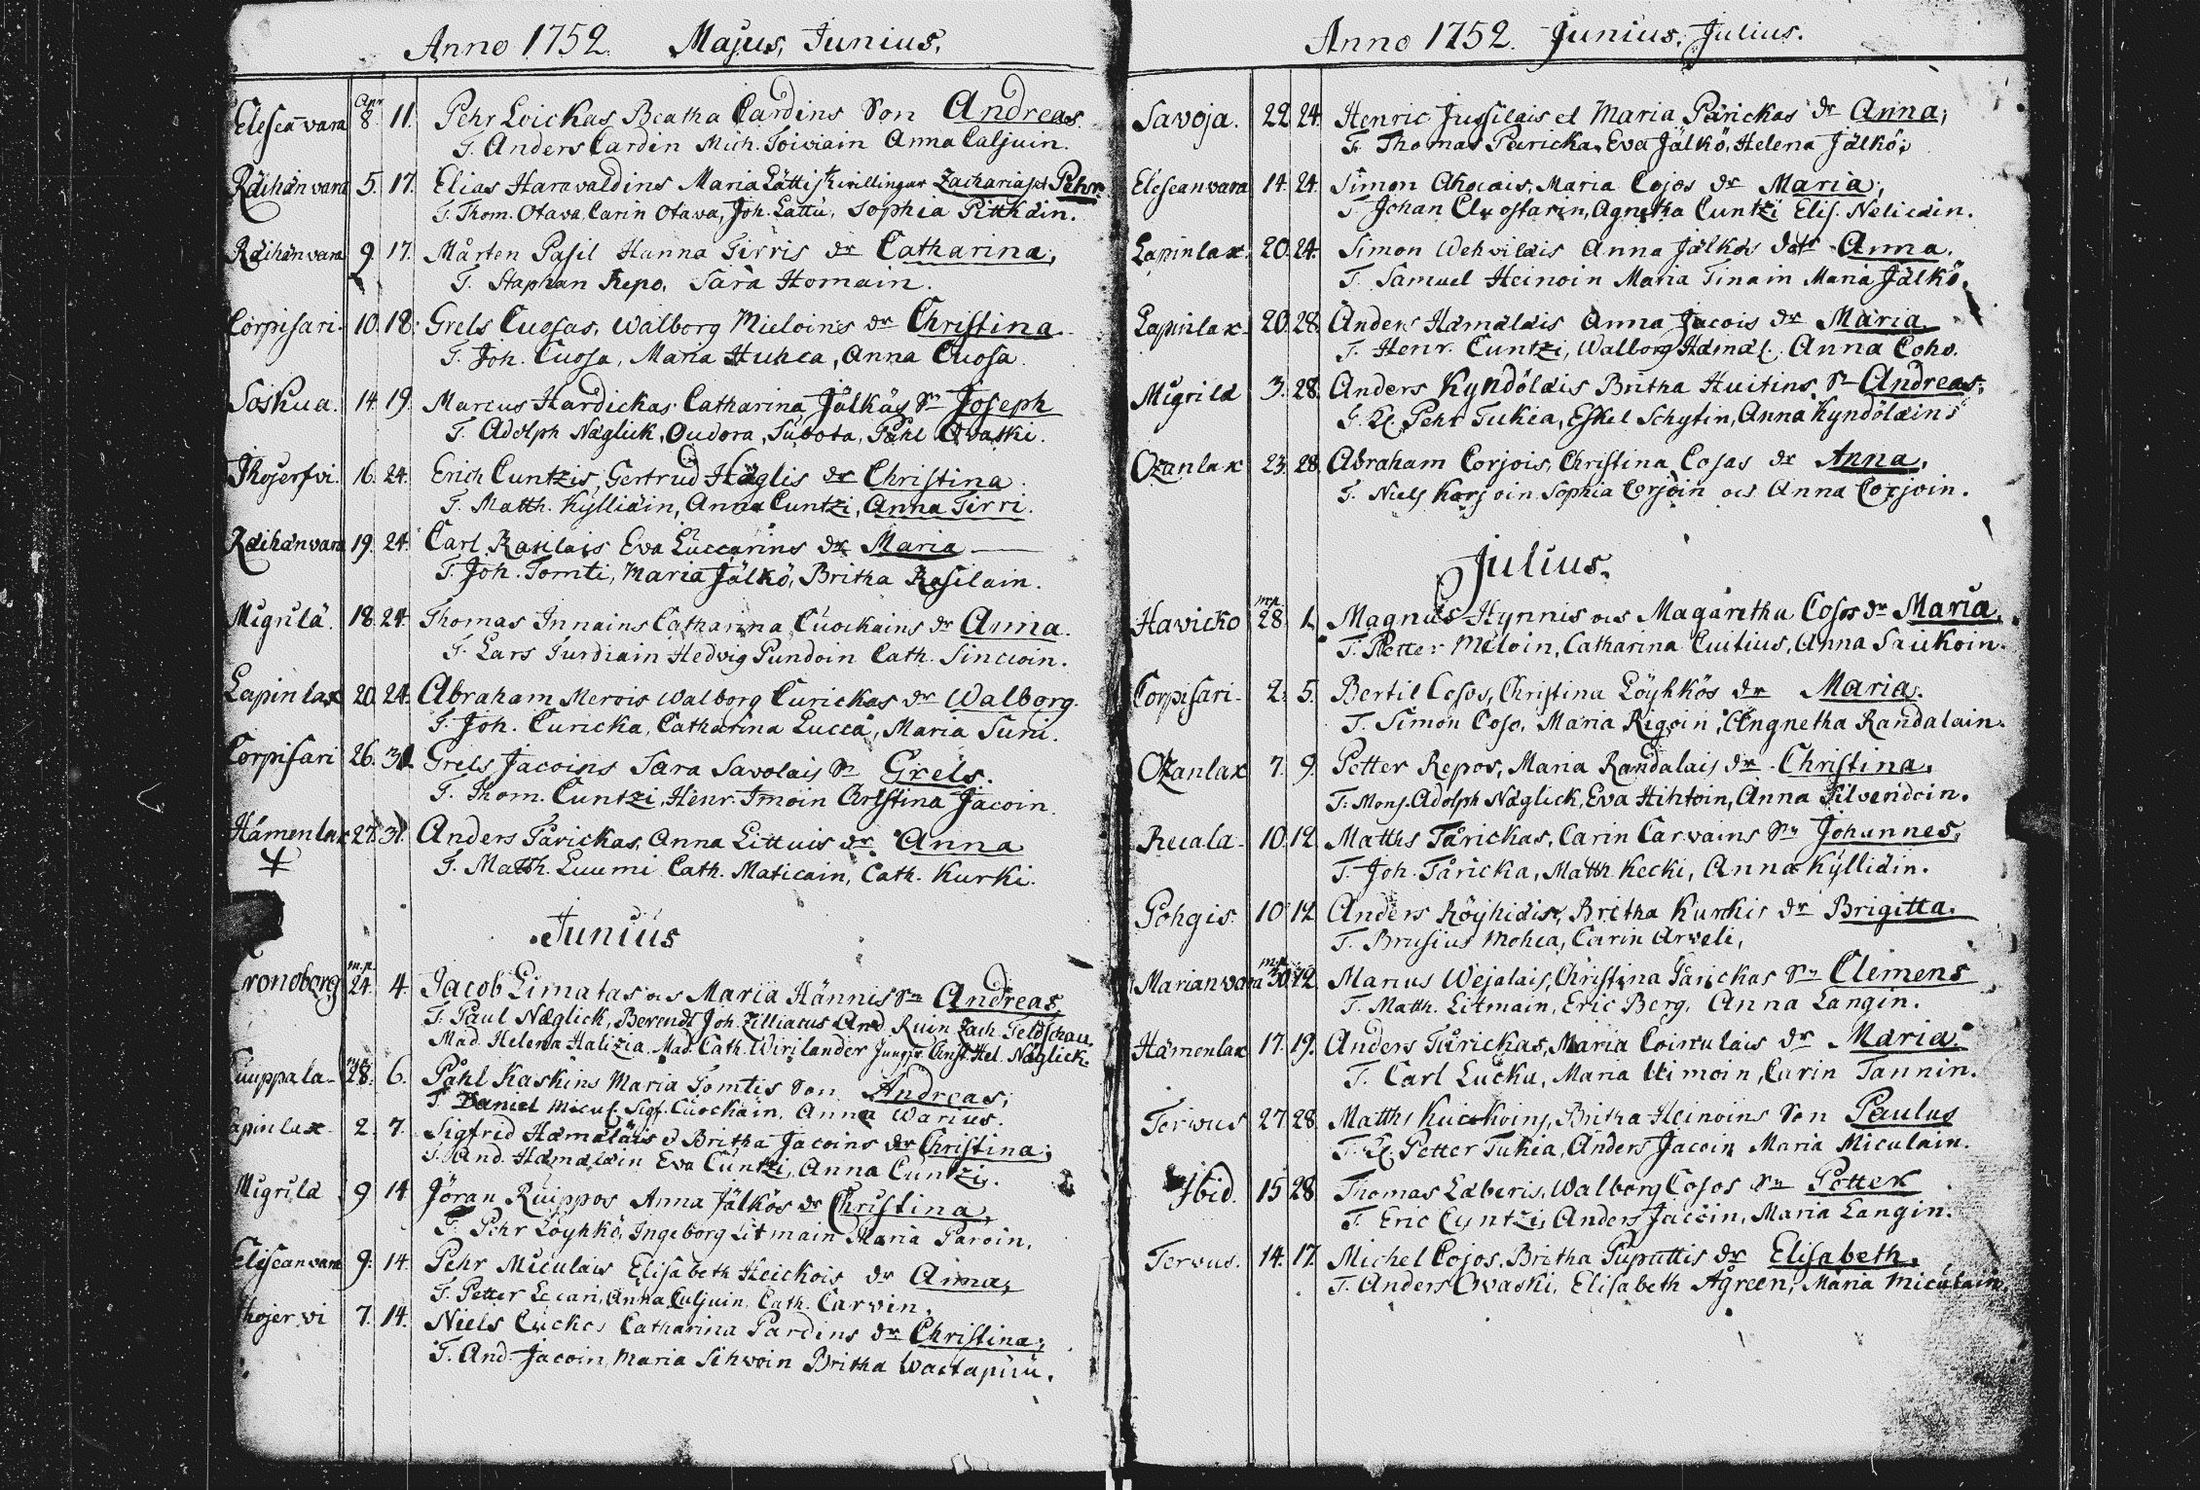 Anno 1752. Majus, Junius.
Apr
Eleseanvara 8 11. Pehr Loickas Beatha Cardins Son Andreas.
T. Anders Cardin Mich. Toiviain Anna Caljuin.
Räihänvara 5. 17. Elias Haravaldins Maria Lättis tvillingar Zacharias et Pehr
T. Thom. Otava, Carin Otava, Joh. Lättu, Sophia Pittkäin.
Räihänvara 9. 17. Mårten Pasil Hanna Tirris dr Catharina,
T. Staphan Repo, Sara Homain.
Corpisari. 10. 18. Grels Cuosas, Walborg Mieloins dr Christina.
T. Joh. Cuosa, Maria Huhca, Anna Cuosa.
Soskua. 14. 19. Marcus Hardickas Catharina Jälkös Sn Joseph
T. Adolph Næglick, Oudora, Subota, Påhl Ovaski.
Thojerfvi. 16. 24. Erich Cuntzis, Gertrud Häglis dr Christina.
T. Matth. Kyllidin, Anna Cuntzi, Anna Tirri.
Räihänvara 19. 24. Carl Rasilais Eva Luccarins dr Maria
T. Joh. Tomti, Maria Jälkö, Britha Rasilain.
Migrilä. 18. 24. Thomas Innains Catharina Cuockains dr Anna.
T. Lars Jurdiain Hedvig Pundoin Cath. Sinccoin.
Lapinlax 20. 24. Abraham Merois Walborg Curickas dr Walborg.
T. Joh. Curicka, Catharina Lucca, Maria Suni.
Corpisari 26. 31. Grels Jacoins Sara Savolais Sn Grels.
T. Thom. Cuntzi, Henr. Imoin Christina Jacoin
Hämenlax 27. 31. Anders Tårickas, Anna Littuis dr Anna
T. Matth. Luumi Cath. Maticain, Cath. Kurki.
Junius
maj.
Cronoborg 24. 4. Jacob Limatas och Maria Hännis Sn Andreas,
T. Paul Næglick, Berendt Joh. Zilliacus And. Ruin Zach. Feldschau,
Mad. Helena Halizia, Mad. Cath. Wirilander Jungfr. Christ. Hel. Næglick.
maj
Cuuppala 28. 6. Påhl Kaskins Maria Tomtis Son Andreas,
T. Daniel Micul. Sigf. Cuockain, Anna Warius.
Lapinlax. 2. 7. Sigfrid Hämäläis o Britha Jacoins dr Christina;
T. And. Hämäläin Eva Cuntzi, Anna Cuntzi.
Migrilä 9 14 Jöran Ruippos Anna Jälkös dr Christina,
T. Pehr Löyhkö, Ingeborg Litmain Maria Paroin.
Eliseanvara 9. 14. Pehr Miculais Elisabeth Heickois dr Anna,
T. Petter Leccari, Anna Culjuin, Cath. Carvin.
Thojervi 7. 14. Niels Cuckos Catharina Pardins dr Christina;
T. And. Jacoin, Maria Sihvoin Britha Wactapuu.
Anno 1752. Junius, Julius.
Savoja. 22. 24. Henric Jussilais et Maria Pärickas dr Anna;
T. Thomas Päricka, Eva Jälkö, Helena Jälkö,
Eleseanvara 14. 24. Simon Ahocais, Maria Cojos dr Maria,
T. Johan Clostarin, Agneta Cuntzi Elis. Nelicain.
Lapinlax. 20. 24. Simon Wehvilais Anna Jälkös dotr Anna.
T. Samuel Heinoin Maria Tinain Maria Jälkö.
Lapinlax. 20. 28. Anders Hämäläis Anna Jacois dr Maria
T. Henr. Cuntzi, Walborg Hämäl. Anna Coho.
Migrilä 3. 28. Anders Kyndöläis Britha Huitins Sn Andreas;
T. Kl. Pehr Tukia, Eskel Schytin, Anna Kyndöläins
Ozanlax 23. 28. Abraham Corjois, Christina Cosas dr Anna,
T. Niels Korjoin Sophia Corjoin och Anna Corjoin.
Julius.
maj.
Havicko 28 1. Magnus Hynnis och Magaretha Cosos dr Maria,
T. Petter Meloin, Catharina Cuitius, Anna Saukoin.
Corpisari. 2. 5. Bertil Cosos, Christina Löyhkös dr Maria.
T. Simon Coso, Maria Rigoin, Angnetha Randalain.
Ozanlax 7. 9. Petter Repos, Maria Randalais dr Christina.
T. Mons. Adolph Näglick, Eva Hihtoin, Anna Silvendoin.
Reeala. 10. 12. Matths Tårickas, Carin Carvains Sn Johannes,
T. Joh. Tåricka, Matth. Kecki, Anna Kyllidin.
Pohgis. 10 12 Anders Röyhidis, Britha Kurkis dr Brigitta.
T. Brusius Mohca, Carin Arveli,
Marianvara 30. 12. Marcus Wejalais, Christina Tårickas Sn Clemens
T. Matth. Litmain, Eric Berg, Anna Langin.
Hämenlax 17. 19. Anders Tårickas, Maria Coirulais dr Maria.
T. Carl Lucka, Maria Uimoin, Carin Tannin.
Tervus 27 28. Matths Kuickoins, Britha Heinoins Son Paulus
T. Kl. Petter Tukia, Anders Jacoin Maria Miculain.
Ibid. 15 28 Thomas Laberis, Walborg Cosos Sn Petter
T. Eric Cuntzi, Anders Jacoin, Maria Langin.
Tervus. 14. 17. Michel Cojos, Britha Puputtis dr Elisabeth.
T. Anders Ovaski, Elisabeth Ågreen, Maria Miculain.